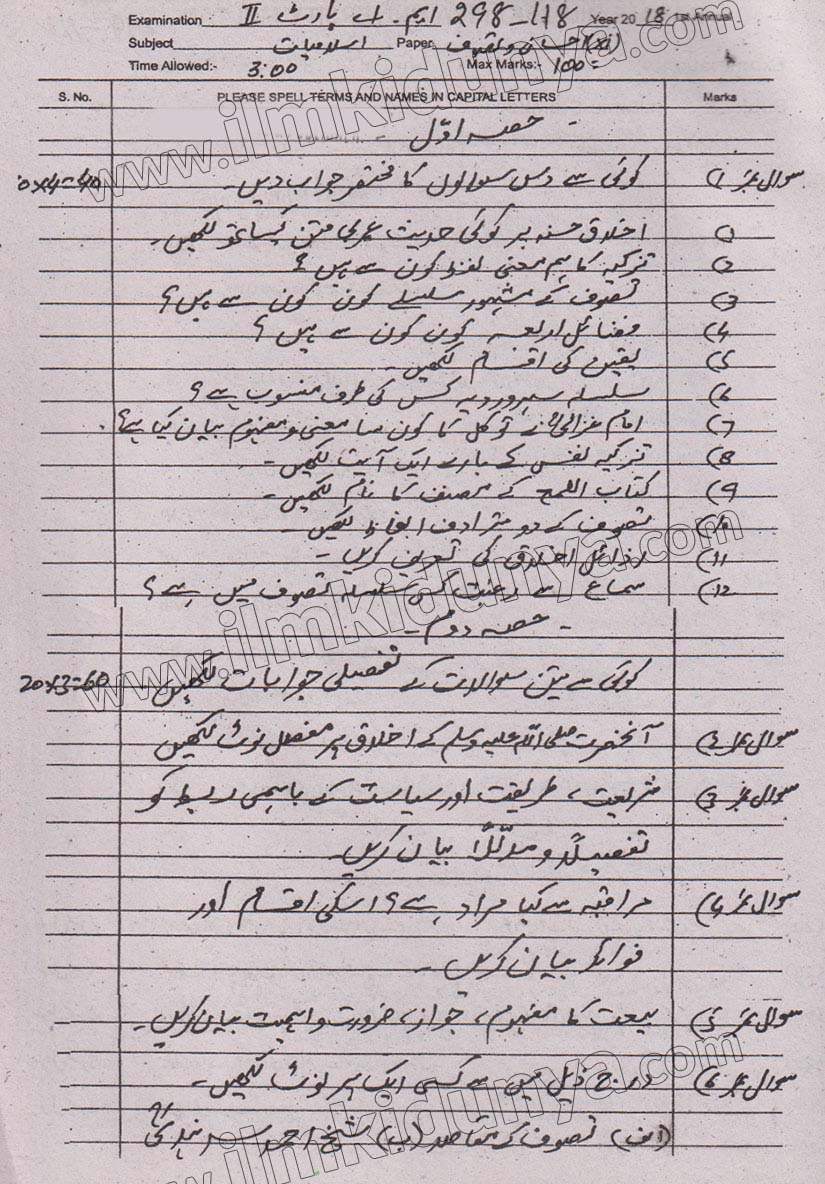 Examination ایم۔اے پارٹ II 298-118 Year 2018 1st Annual
Subject اسلامیات Paper (xi) احسان و تصوف
Time Allowed:- 3:00 Max Marks:- 100=
S. No. PLEASE SPELL TERMS AND NAMES IN CAPITAL LETTERS Marks
حصہ اوّل -
سوال نمبر 1) کوئی سے دس سوالوں کا مختصر جواب دیں۔ 0x4=40
1) اخلاق حسنہ پر کوئی حدیث عربی متن کیساتھ لکھیں۔
2) تزکیہ کا ہم معنی لفظ کون سے ہیں؟
3) تصوف کے مشہور سلسلے کون کون سے ہیں؟
4) فضائل اربعہ کون کون سے ہیں؟
5) یقین کی اقسام لکھیں۔
6) سلسلہ سہروردیہ کس کی طرف منسوب ہے؟
7) امام غزالیؒ نے توکل کا کون سا معنی و مفہوم بیان کیا ہے؟
8) تزکیہ نفس کے بارے ایک آیت لکھیں۔
9) کتاب اللمع کے مصنف کا نام لکھیں۔
10) تصوف کے دو مترادف الفاظ لکھیں
11) رذائل اخلاق کی تعریف کریں۔
12) سماع سے رغبت کس سلسلہ تصوف میں ہے؟
- حصہ دوم -
کوئی سے تین سوالات کے تفصیلی جوابات لکھیں 20x3=60
سوال نمبر 2) آنحضرت صلی اللہ علیہ وسلم کے اخلاق پر مفصل نوٹ لکھیں
سوال نمبر 3) شریعت، طریقت اور سیاست کے باہمی ربط کو
تفصیلاً و مدللاً بیان کریں۔
سوال نمبر 4) مراقبہ سے کیا مراد ہے؟ اسکی اقسام اور
فوائد بیان کریں۔
سوال نمبر 5) بیعت کا مفہوم، جواز، ضرورت و اہمیت بیان کریں۔
سوال نمبر 6) درج ذیل میں سے کسی ایک پر نوٹ لکھیں۔
(الف) تصوف کے مقاصد (ب) شیخ احمد سرہندیؒ
www.ilmkidunya.com
www.ilmkidunya.com
www.ilmkidunya.com